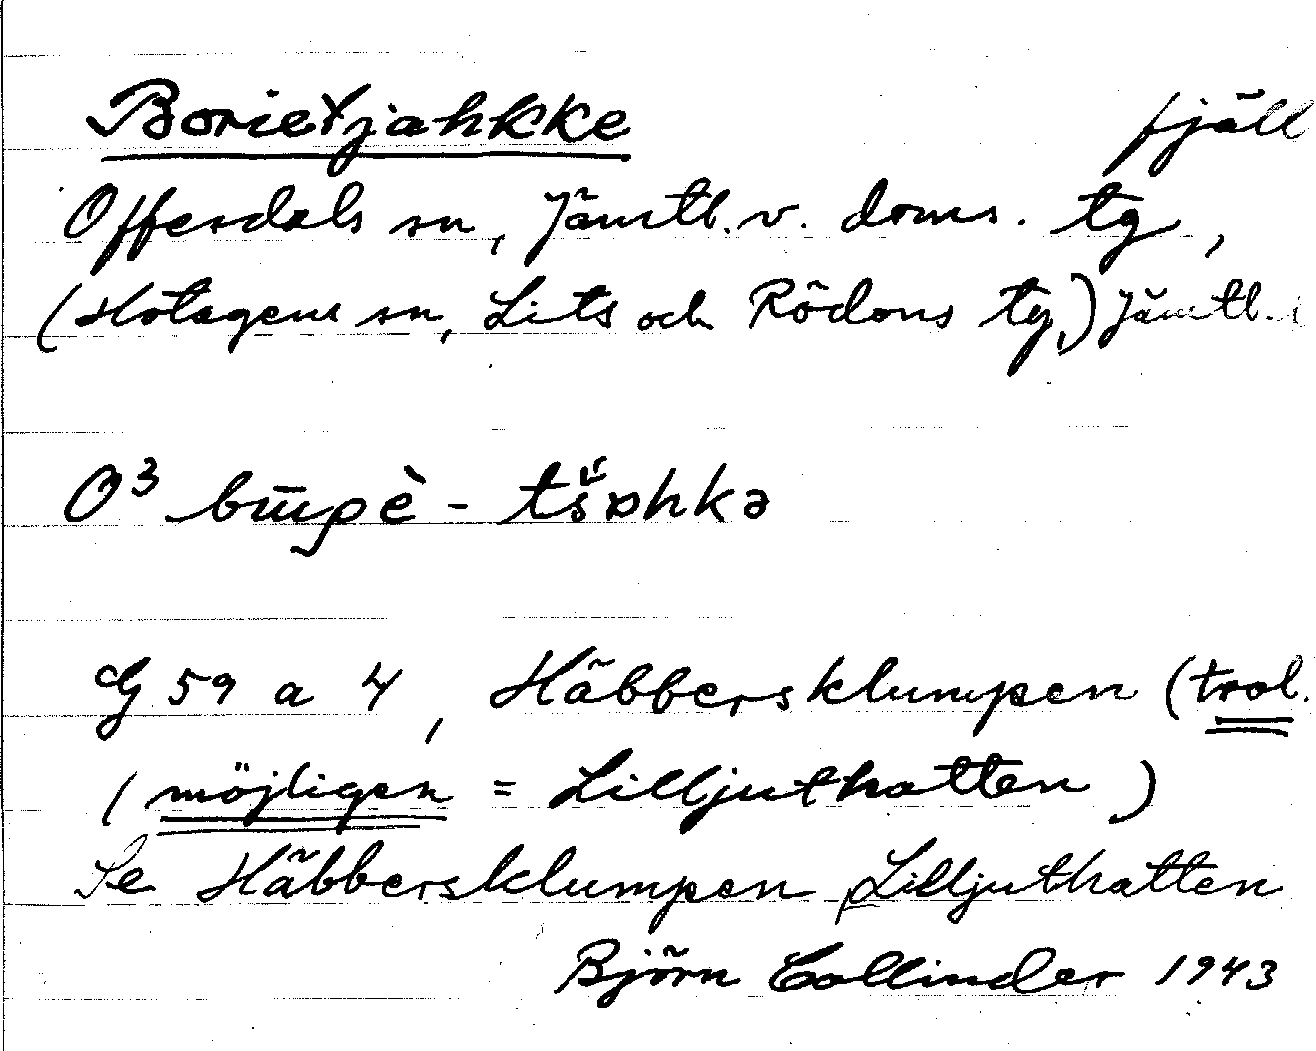 Borietjahkke fjäll
Offerdals sn, Jämtl. v. doms. tg,
(Hotagens sn, Lits och Rödöns tg,) Jämtl.
O³
G 59 a 4, Häbbersklumpen (trol.
(möjligen = Lilljuthatten)
Se Häbbersklumpen, Lilljuthatten
Björn Collinder 1943